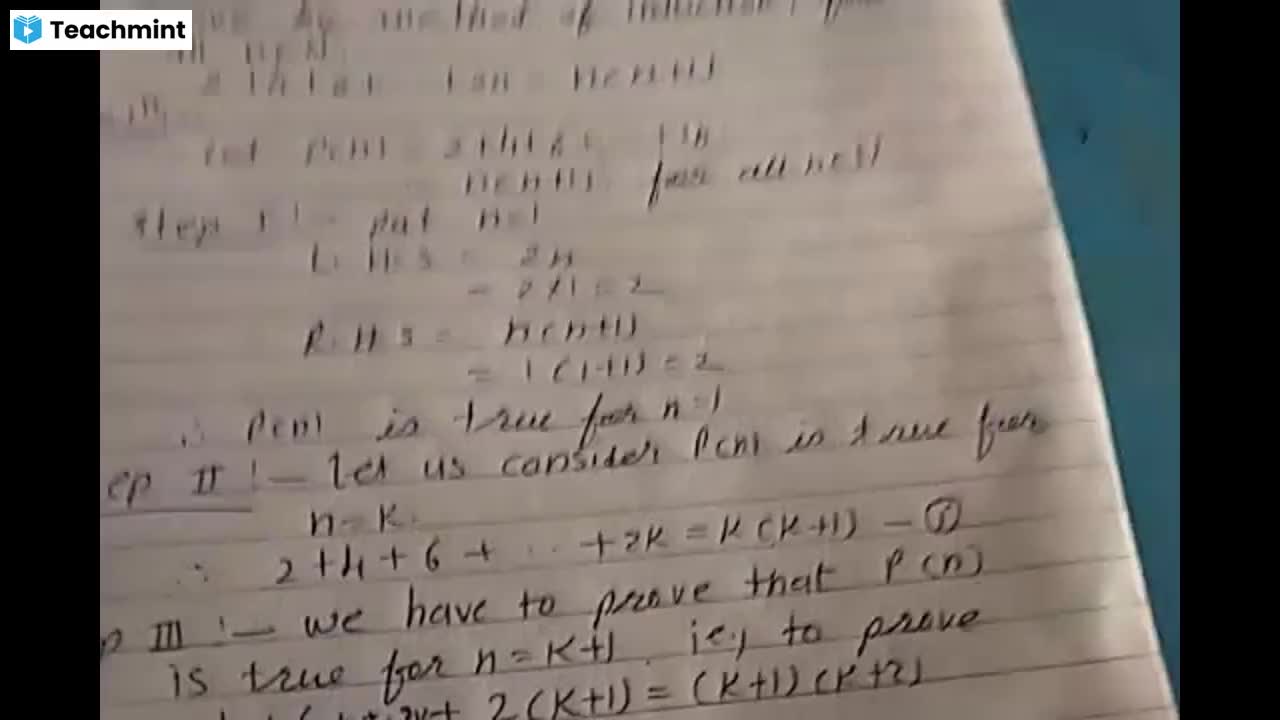 Teachmint
by method of induction, for
all n∈N
2+4+6+ +2n = n(n+1)
Let P(n) = 2+4+6+ +2n
= n(n+1), for all n∈N
Step I :- put n=1
L.H.S = 2n
= 2×1 = 2
R.H.S = n(n+1)
= 1(1+1) = 2
∴ P(n) is true for n=1
ep II :- Let us consider P(n) is true for
n=K.
∴ 2+4+6+ ... +2K = K(K+1) - ①
p III :- we have to prove that P(n)
is true for n=K+1. ie., to prove
2K+ 2(K+1) = (K+1)(K+2)